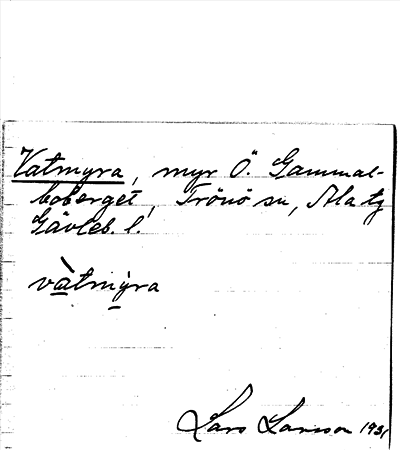 Vatmyra, myr Ö. Gammal-
boberget, Trönö sn, Ala tg
Gävleb. l.
vàtmy̱ra
Lars Larsson 1931